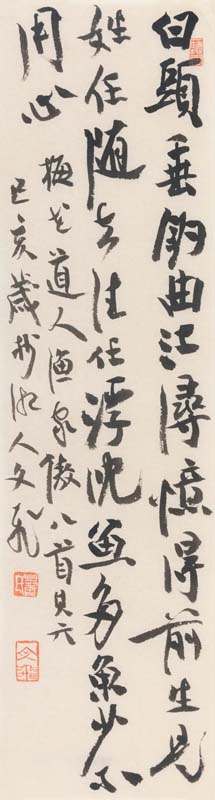 白頭垂釣曲江潯憶得前生是
姓任随去住任浮沈魚多魚少不
用心
梅花道人漁家傲八首其六
己亥歲杪湘人文飛